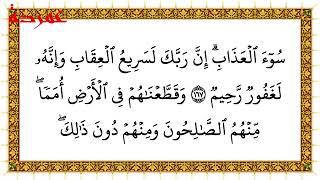 سُوٓءَ ٱلْعَذَابِۗ إِنَّ رَبَّكَ لَسَرِيعُ ٱلْعِقَابِ وَإِنَّهُۥ
لَغَفُورٌ رَّحِيمٌ ١٦٧ وَقَطَّعْنَٰهُمْ فِى ٱلْأَرْضِ أُمَمًاۖ
مِّنْهُمُ ٱلصَّٰلِحُونَ وَمِنْهُمْ دُونَ ذَٰلِكَۖ